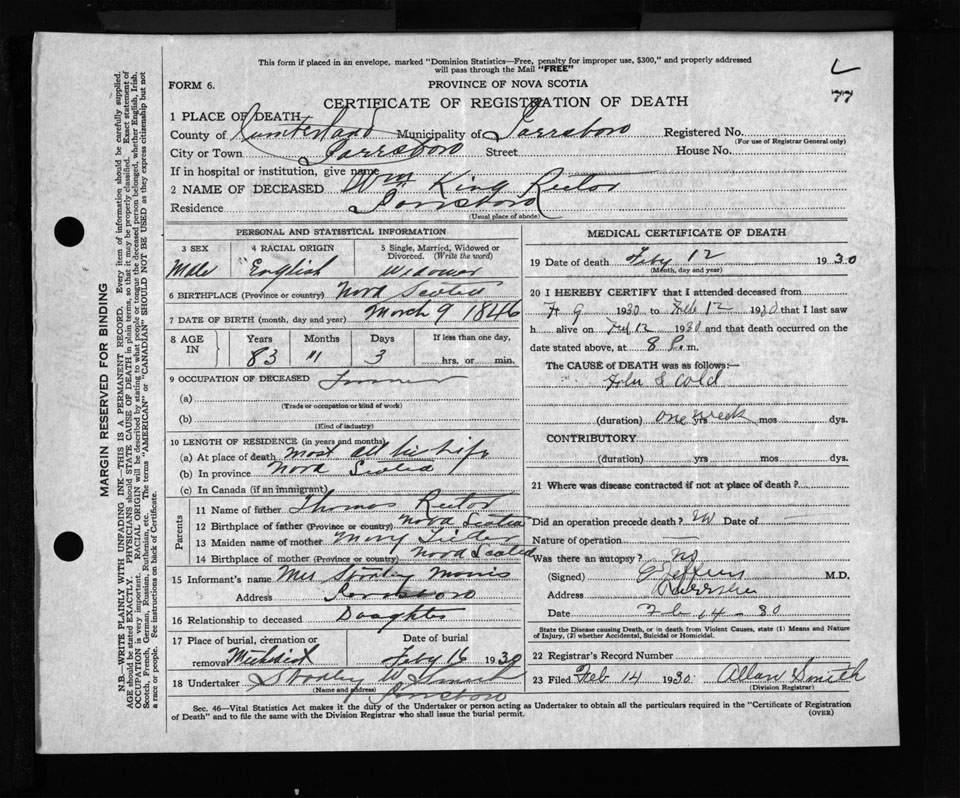 This form if placed in an envelope, marked "Dominion Statistics—Free, penalty for improper use, $300," and properly addressed
will pass through the Mail "FREE"
FORM 6.
PROVINCE OF NOVA SCOTIA
77
CERTIFICATE OF REGISTRATION OF DEATH
1 PLACE OF DEATH
County of Cumberland Municipality of Parrsboro Registered No.
(For use of Registrar General only)
City or Town Parrsboro Street House No.
If in hospital or institution, give name
2 NAME OF DECEASED Wm King Rector
Residence Parrsboro
(Usual place of abode)
PERSONAL AND STATISTICAL INFORMATION
3 SEX 4 RACIAL ORIGIN 5 Single, Married, Widowed or Divorced. (Write the word)
Male English Widower
6 BIRTHPLACE (Province or country) Nova Scotia
7 DATE OF BIRTH (month, day and year) March 9 1846
8 AGE IN Years Months Days If less than one day,
83 11 3 hrs. or min.
9 OCCUPATION OF DECEASED
(a)
(Trade or occupation or kind of work)
(b)
(Kind of industry)
10 LENGTH OF RESIDENCE (in years and months)
(a) At place of death most all his life
(b) In province Nova Scotia
(c) In Canada (if an immigrant)
Parents
11 Name of father Thomas Rector
12 Birthplace of father (Province or country) Nova Scotia
13 Maiden name of mother Mary
14 Birthplace of mother (Province or country) Nova Scotia
15 Informant's name Mrs Stanley Morris
Address Parrsboro
16 Relationship to deceased Daughter
17 Place of burial, cremation or removal Date of burial
Feby 16 1930
18 Undertaker Stanley W
(Name and address) Parrsboro
MEDICAL CERTIFICATE OF DEATH
19 Date of death Feby 12 1930
(Month, day and year)
20 I HEREBY CERTIFY that I attended deceased from
9 1930 to Feb 12 1930 that I last saw
h alive on Feb 12 1930 and that death occurred on
date stated above, at 8 P. m.
The CAUSE of DEATH was as follows:—
Cold
(duration) one week yrs mos dys.
CONTRIBUTORY
(duration) yrs mos dys.
21 Where was disease contracted if not at place of death?
Did an operation precede death? no Date of —
Nature of operation —
Was there an autopsy? no
(Signed) M.D.
Address
Date Feb 14 - 30
State the Disease causing Death, or in death from Violent Causes, state (1) Means and Nature
of Injury, (2) whether Accidental, Suicidal or Homicidal.
22 Registrar's Record Number
23 Filed Feb 14 1930 Allan Smith
(Division Registrar)
Sec. 46—Vital Statistics Act makes it the duty of the Undertaker or person acting as Undertaker to obtain all the particulars required in the "Certificate of Registration
of Death" and to file the same with the Division Registrar who shall issue the burial permit. (OVER)
MARGIN RESERVED FOR BINDING
N.B.—WRITE PLAINLY WITH UNFADING INK—THIS IS A PERMANENT RECORD. Every item of information should be carefully supplied.
AGE should be stated EXACTLY. PHYSICIANS should STATE CAUSE OF DEATH in plain terms, so that it may be properly classified. Exact statement of
OCCUPATION is very important. RACIAL ORIGIN will be described by stating to what people or tongue the deceased person belonged, whether English, Irish,
Scotch, French, German, Russian, Ruthenian, etc. The terms "AMERICAN" or "CANADIAN" SHOULD NOT BE USED as they express citizenship but not
a race or people. See instructions on back of Certificate.